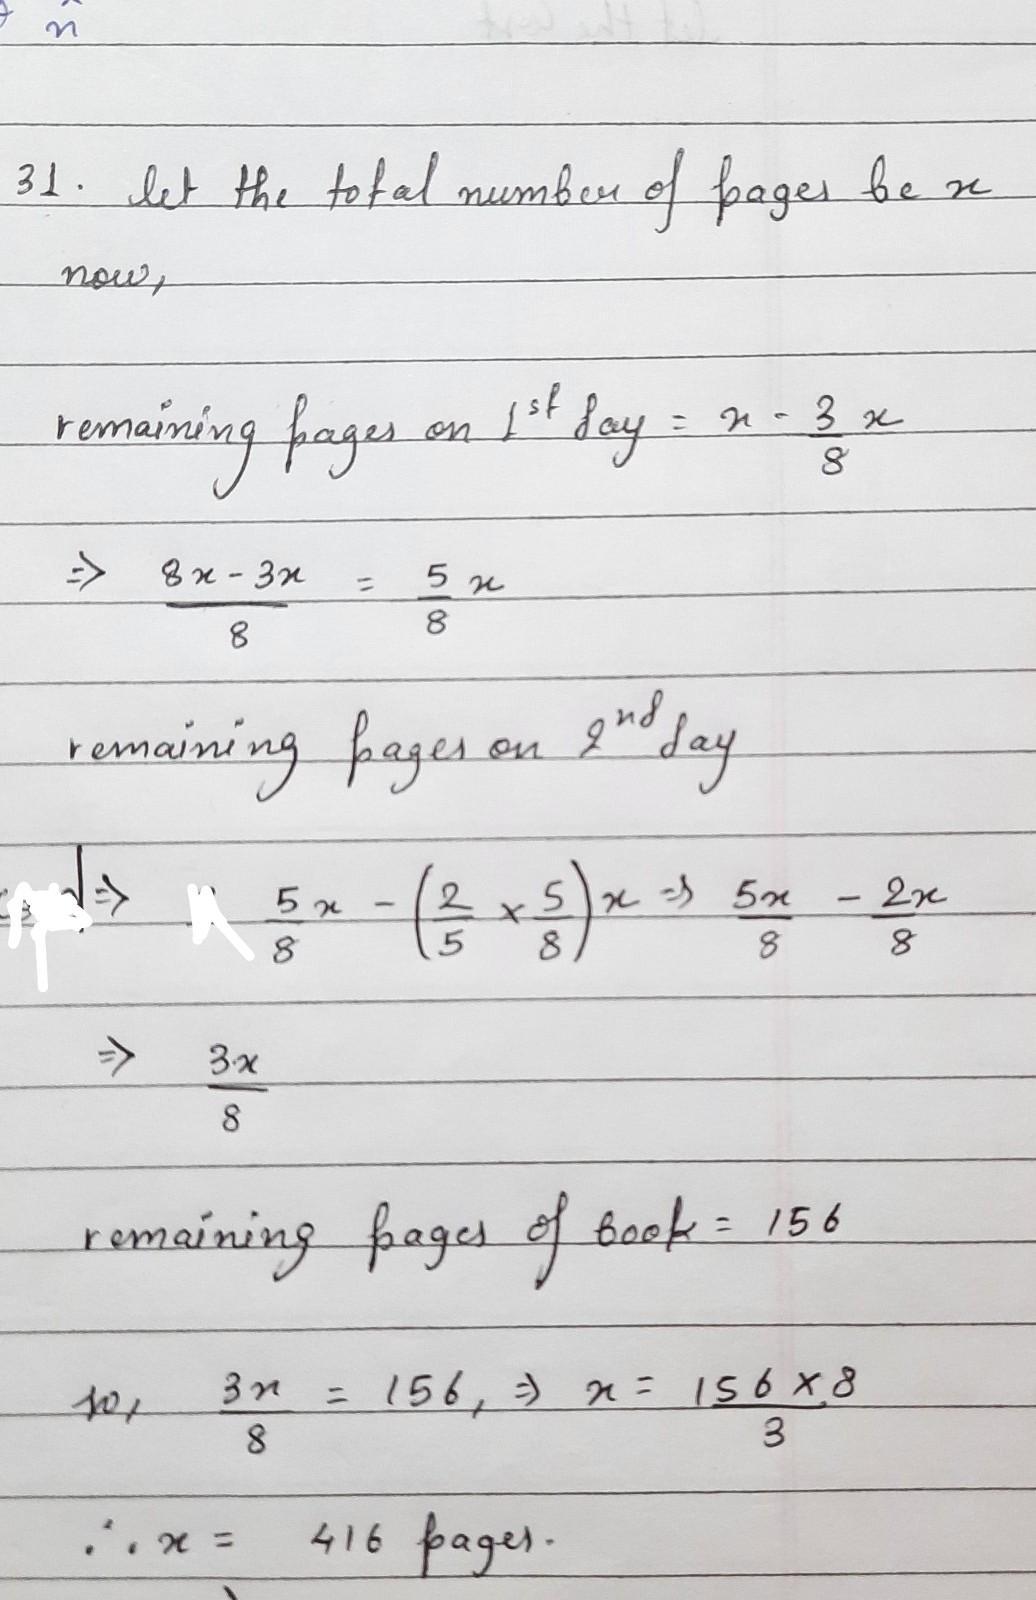 n
31. let the total number of pages be x
now,
remaining pages on 1st day = x - 3/8 x
=> 8x - 3x / 8 = 5/8 x
remaining pages on 2nd day
=> 5/8 x - (2/5 × 5/8) x => 5x/8 - 2x/8
=> 3x/8
remaining pages of book = 156
so, 3x/8 = 156, => x = 156 × 8 / 3
∴ x = 416 pages.